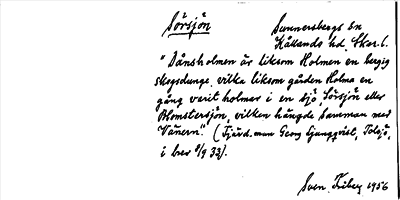 Sörsjön Sunnersbergs Sn
Kållands hd. Skar. l.
"Dånsholmen är liksom Holmen en bergig
skogsdunge, vilka liksom gården Holma en
gång varit holmar i en sjö, Sörsjön eller
Blomstersjön, vilken hängde samman med
Vänern." (Fjärd.man Georg Ljungqvist, Tolsjö,
i brev 8/9 33).
Sven Friberg 1956